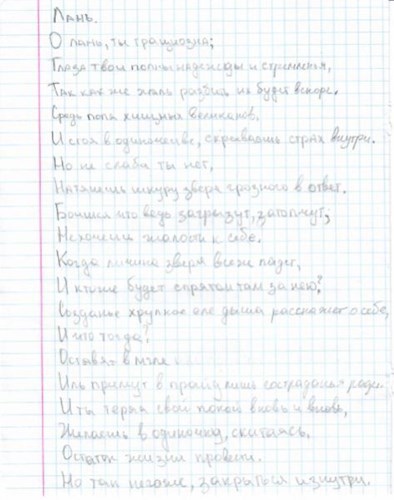 Лань.
О лань, ты грациозна;
Глаза твои полны надежды и стремленья,
Так как же жаль разбиты их будет вскоре.
Средь поля хищных великанов,
И стоя в одиночестве, скрываешь страх внутри.
Но не слаба ты нет,
Натянешь шкуру зверя грозного в ответ.
Боишься что ведь загрызут, затопчут;
Не хочешь жалости к себе.
Когда личина зверя всеж падет,
И кто же будет спрятан там за нею?
Созданье хрупкое еле дыша расскажет о себе,
И что тогда?
Оставят в мгле
Иль примут в прайд лишь состраданья ради.
И ты теряя свой покой вновь и вновь,
Желаешь в одиночку, скитаясь,
Остаток жизни провести.
Но так негоже, закрыться изнутри.